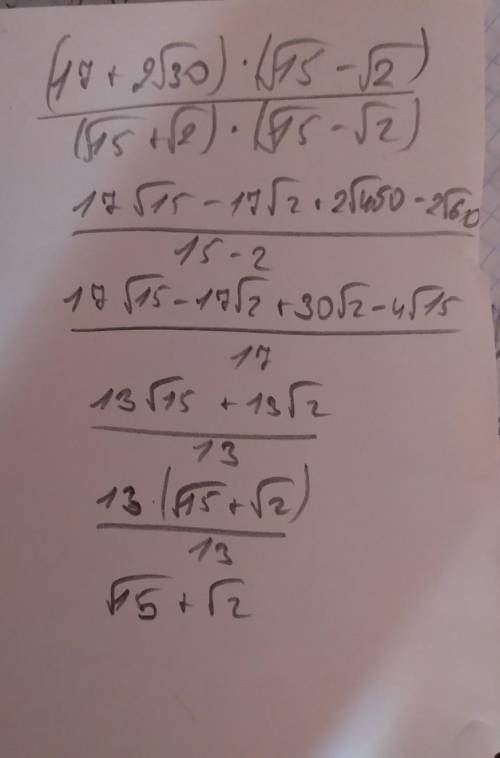 (17 + 2√30) · (√15 - √2)
(√15 + √2) · (√15 - √2)
17√15 - 17√2 + 2√450 - 2√60
15 - 2
17√15 - 17√2 + 30√2 - 4√15
17
13√15 + 13√2
13
13 · (√15 + √2)
13
√15 + √2